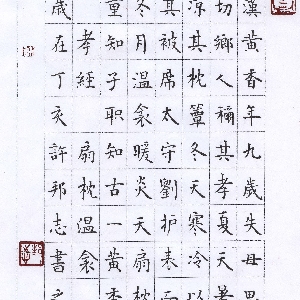 漢黃香年九歲失母思
切鄉人稱其孝夏天暑
涼其枕簟冬天寒冷以
其被席太守劉护表而
冬月溫衾暖炎天扇枕
童知子职知古一黃香
孝經 扇枕溫衾
歲在丁亥許邦志書